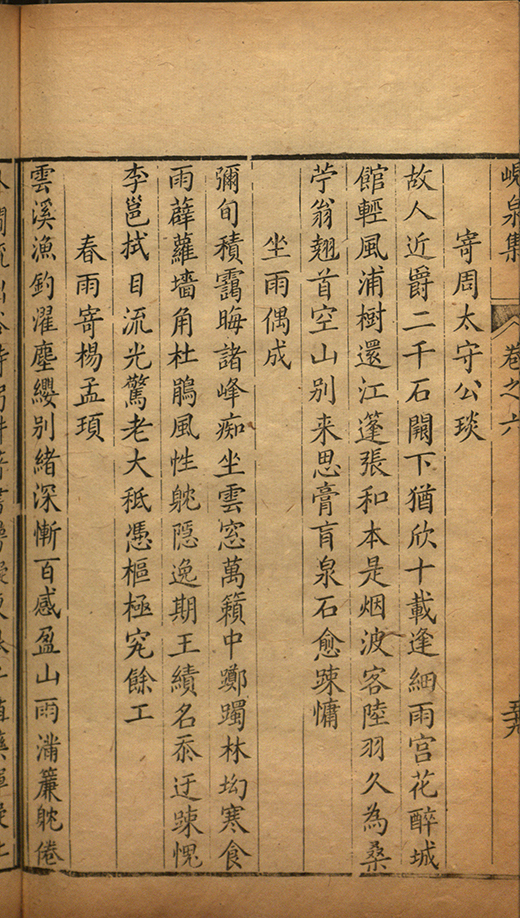 峴泉集
卷之六
寄周太守公琰
故人近爵二千石闕下猶欣十載逢細雨宫花醉城
館輕風浦樹還江篷張和本是烟波客陸羽久為桑
苧翁翹首空山别来思膏肓泉石愈踈慵
坐雨偶成
彌旬積靄晦諸峰痴坐雲窓萬籟中躑躅林坳寒食
雨薜蘿墻角杜鵑風性躭隠逸期王績名忝迂踈愧
李邕拭目流光驚老大秪憑樞極究餘工
春雨寄楊孟頊
雲溪漁釣濯塵纓别緒深慚百感盈山雨滿簾躭倦